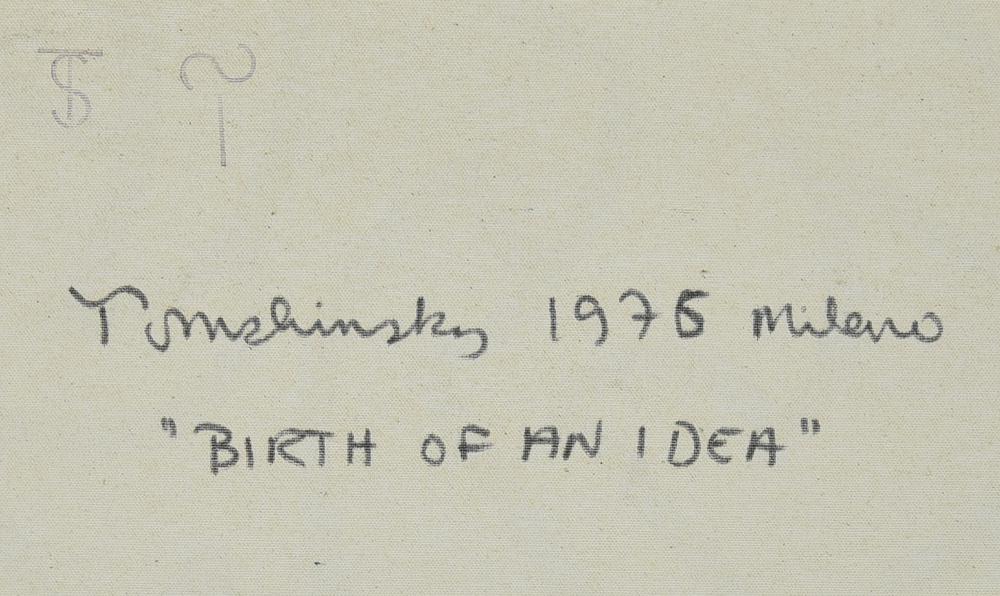 Tomshinsky 1975 Milano
"BIRTH OF AN IDEA"